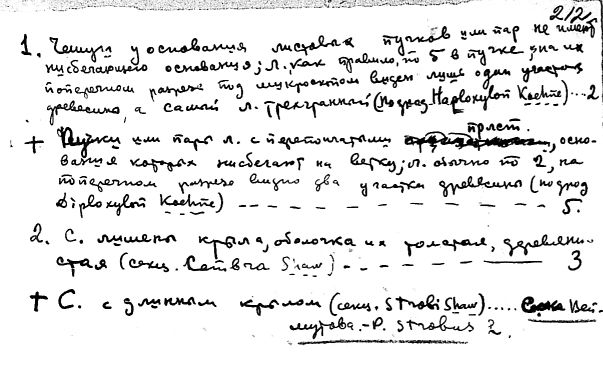 212
1. Чешуи у основания листовых пучков или пар не имеют
низбегающего основания; л. как правило, по 5 в пучке, на их
поперечном разрезе под микроскопом виден лишь один участок
древесины, а самый л. трехгранный (подрод Haploxylon Koehne) ... 2
+ Пучки или пары л. с перепончатыми
прлст. , осно-
вания которых низбегают на ветку; л. обычно по 2, на
поперечном разрезе видно два участка древесины (подрод
Diploxylon Koehne) – – – – – – – – – – – – 5.
2. С. лишены крыла, оболочка их толстая, деревяни-
стая (секц. Cembra Shaw) – – – – – – 3
+ С. с длинным крылом (секц. Strobi Shaw) ..... Сосна Вей-
мутова. – P. Strobus L.